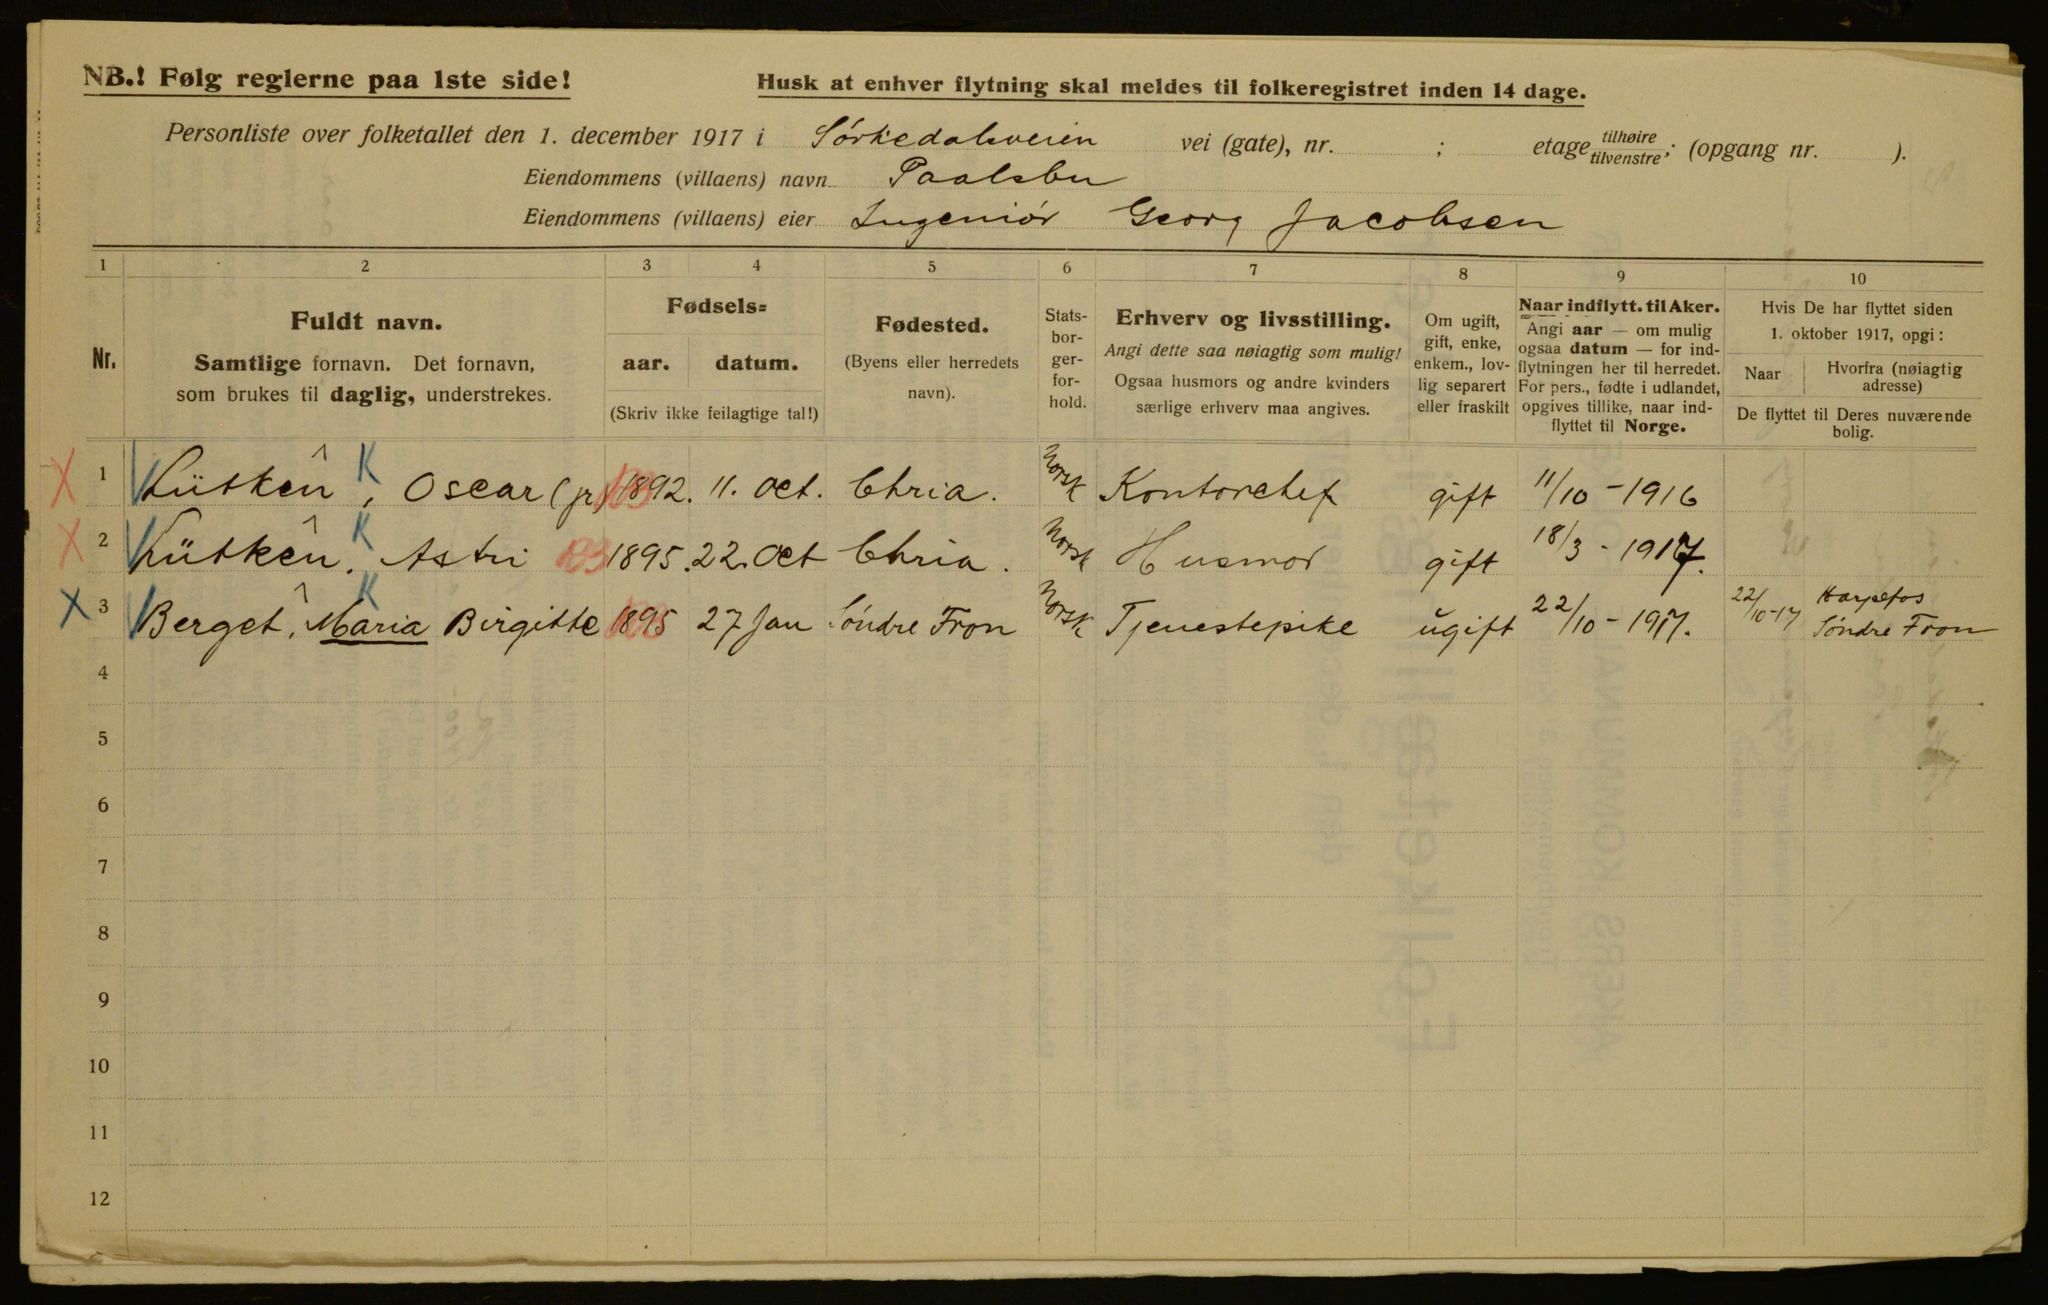 NB.! Følg reglerne paa 1ste side!
Husk at enhver flytning skal meldes til folkeregistret inden 14 dage.
Personliste over folketallet den 1. december 1917 i Sørkedalsveien vei (gate), nr. ; etage tilhøire/tilvenstre; (opgang nr. ).
Eiendommens (villaens) navn Paalsbu
Eiendommens (villaens) eier Ingeniør Georg Jacobsen
1 2 3 4 5 6 7 8 9 10
Nr.
Fuldt navn.
Samtlige fornavn. Det fornavn,
som brukes til daglig, understrekes.
Fødsels=
aar. datum.
(Skriv ikke feilagtige tal!)
Fødested.
(Byens eller herredets
navn).
Stats-
bor-
ger-
for-
hold.
Erhverv og livsstilling.
Angi dette saa nøiagtig som mulig!
Ogsaa husmors og andre kvinders
særlige erhverv maa angives.
Om ugift,
gift, enke,
enkem., lov-
lig separert
eller fraskilt
Naar indflytt. til Aker.
Angi aar — om mulig
ogsaa datum — for ind-
flytningen her til herredet.
For pers., fødte i udlandet,
opgives tillike, naar ind-
flyttet til Norge.
Hvis De har flyttet siden
1. oktober 1917, opgi:
Naar
Hvorfra (nøiagtig
adresse)
De flyttet til Deres nuværende
bolig.
X 1 Lütken K, Oscar (jr) 1892. 11. Oct. Chria. Norsk Kontorchef gift 11/10 - 1916
X 2 Lütken K, Astri 1895. 22. Oct Chria. Norsk Husmor gift 18/3 - 1917.
X 3 Berget K, Maria Birgitte 1895 27 Jan Søndre Fron Norsk Tjenestepike ugift 22/10 - 1917. 22/10-17 Harpefos
Søndre Fron
4
5
6
7
8
9
10
11
12